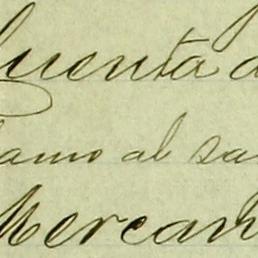 cuenta d
amo al sa
Mercan